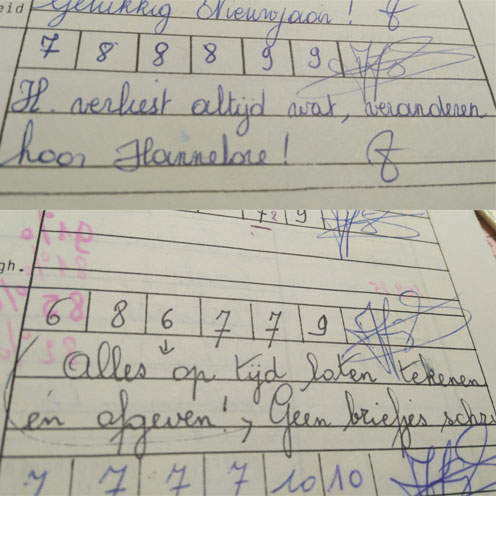 eid Gelukkig Nieuwjaar!
7 8 8 8 9 9
H. verliest altijd wat, veranderen
hoor Hannelore!
7 2 9
gh.
6 8 6 7 7 9
Alles op tijd laten tekenen
én afgeven! Geen briefjes schri
7 7 7 7 10 10